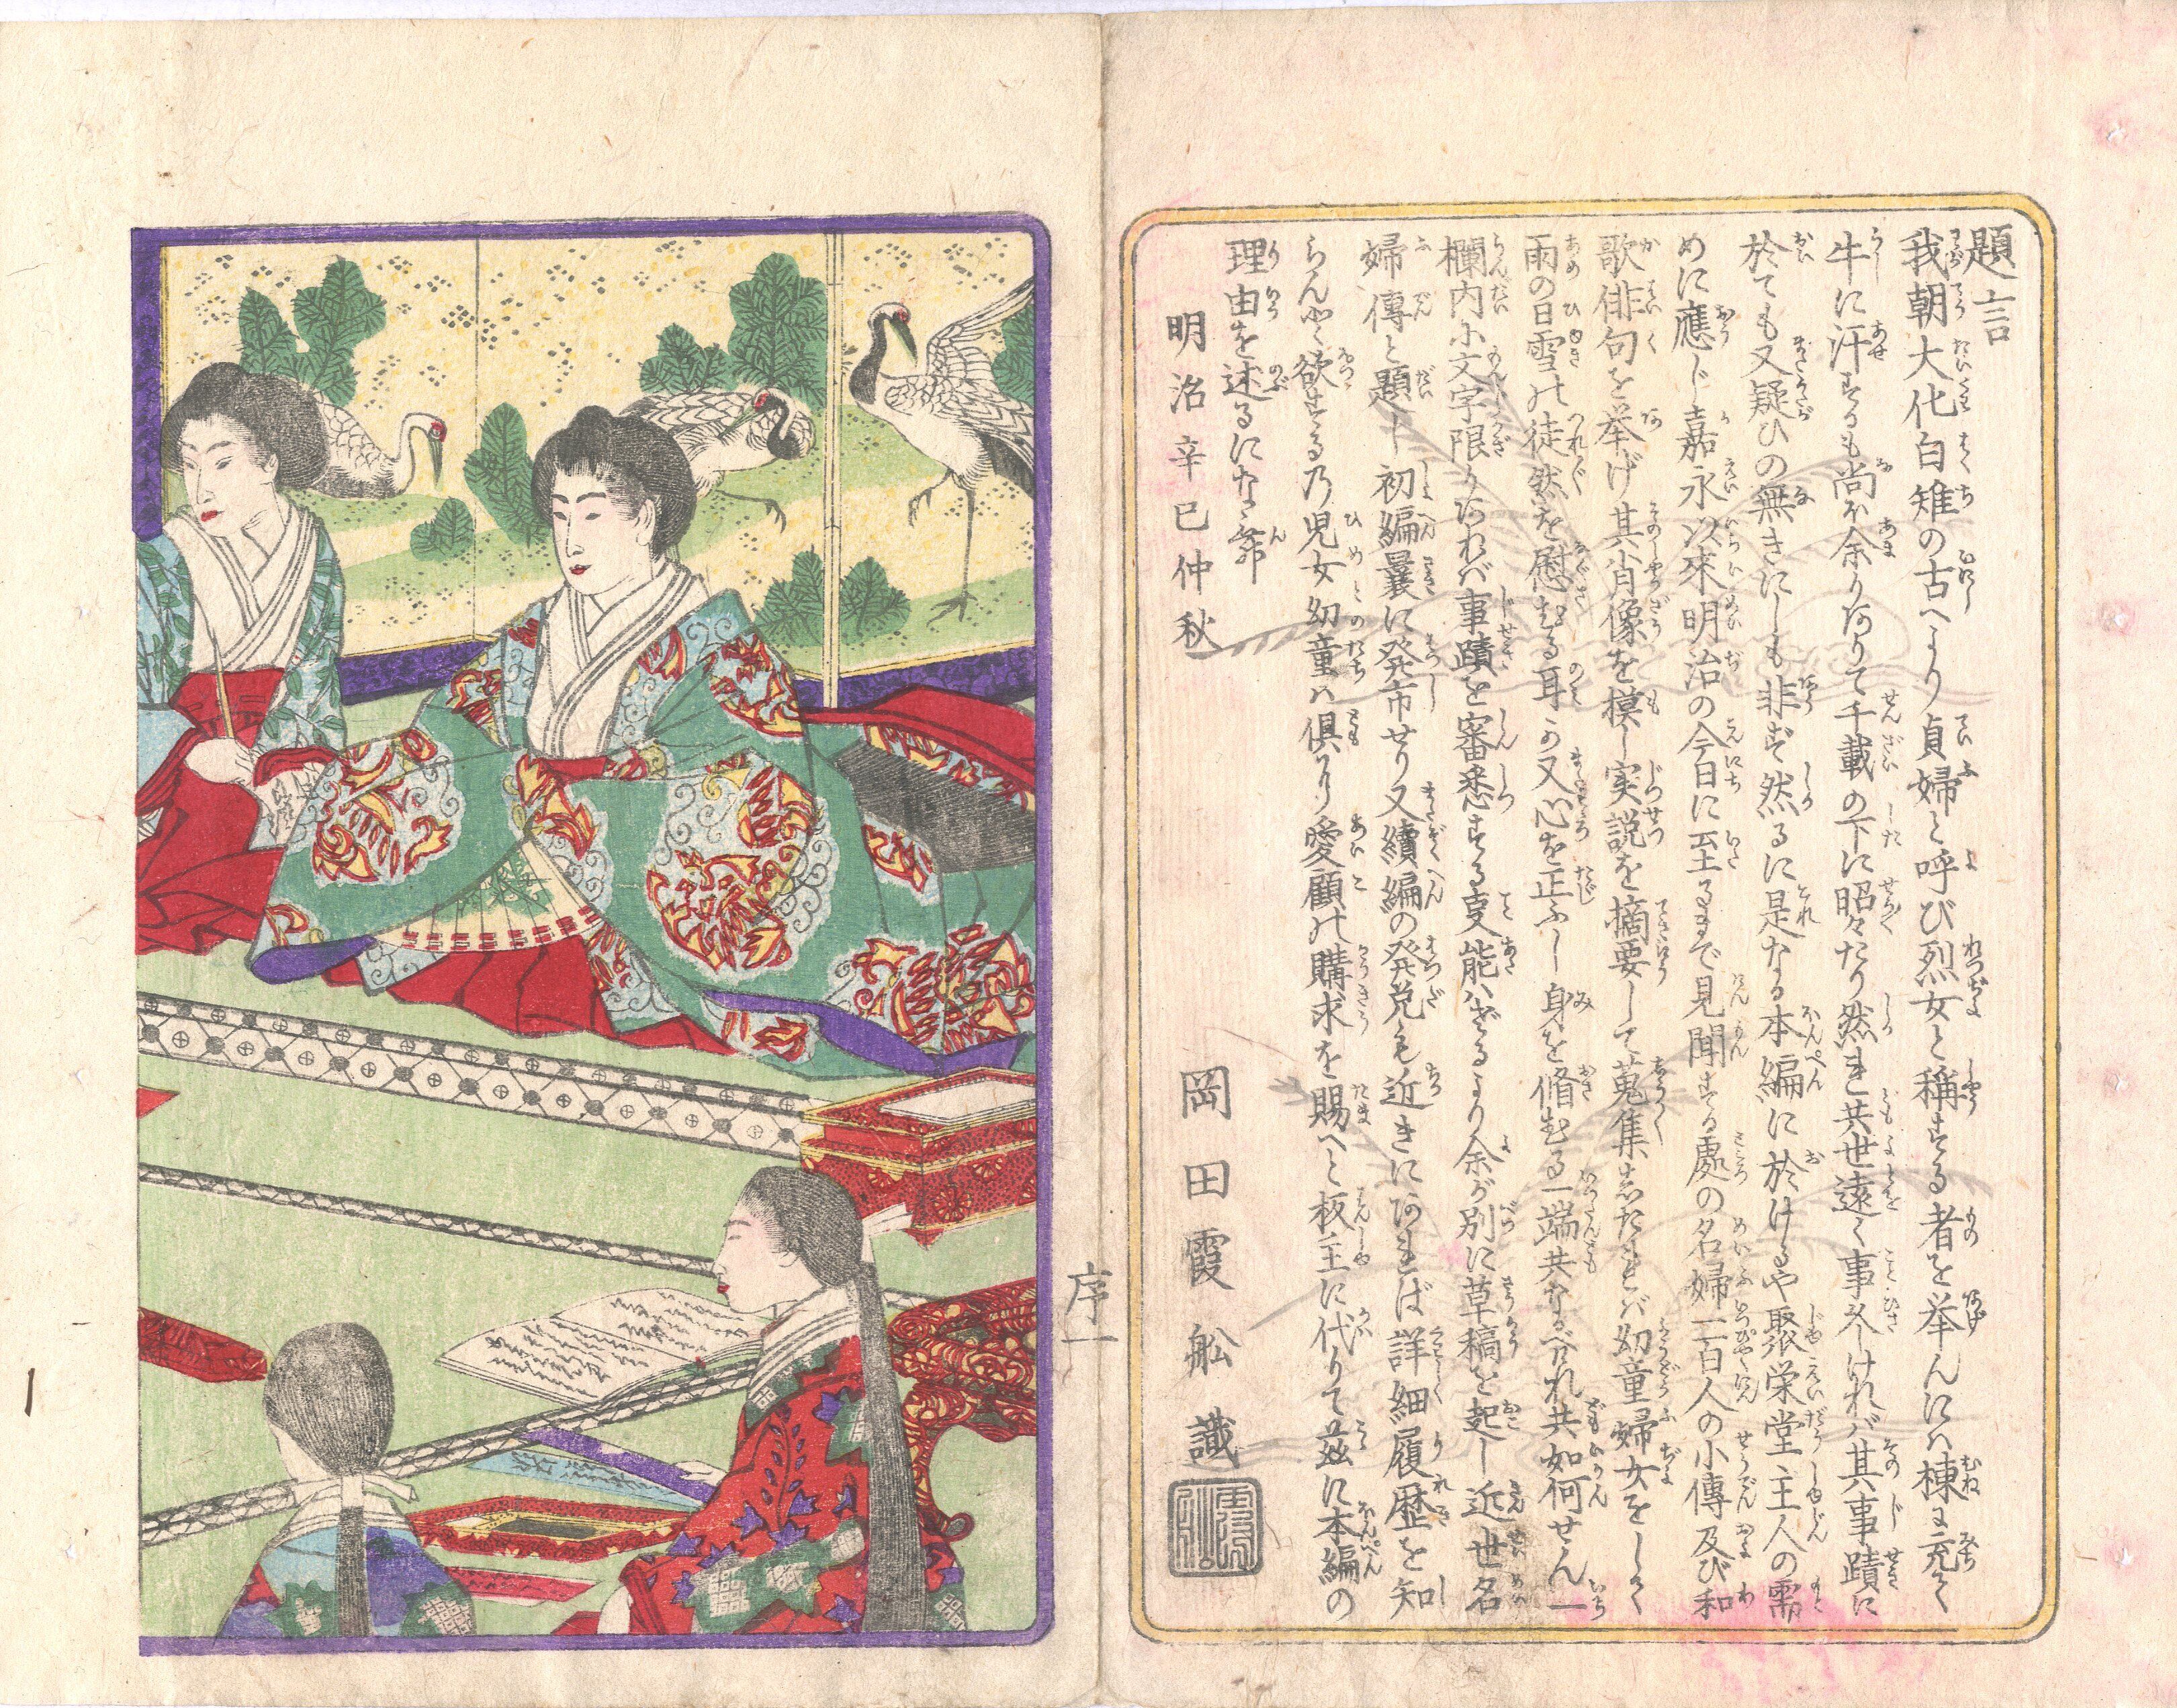 題言
我朝大化白雉の古へより貞婦と呼び烈女と稱する者を挙んにハ棟に充て
牛に汗するも尚ほ余りありて千載の下に昭々たり然れ共世遠く事久しければ其事蹟に
於ても又疑ひの無きにしも非ず然るに是なる本編に於けるや聚栄堂主人の需
めに應じ嘉永以來明治の今日に至るまで見聞する處の名婦二百人の小傳及び和
歌俳句を挙げ其肖像を摸し実説を摘要して蒐集したれバ幼童婦女をしく
雨の日雪の徒然を慰むる耳か又心を正ふし身を脩むる一端共なるべけれ共如何せん一
欄内小文字限りあれバ事蹟を審悉する事能ハざるより余が別に草稿を起し近世名
婦傳と題し初編曩に発市せり又續編の発兌も近きにあれば詳細履歴を知
らんと欲する乃児女幼童ハ倶に愛顧の購求を賜へと板主に代りて茲に本編の
理由を述るになん爾
明治辛巳仲秋
岡田霞舩識
序一